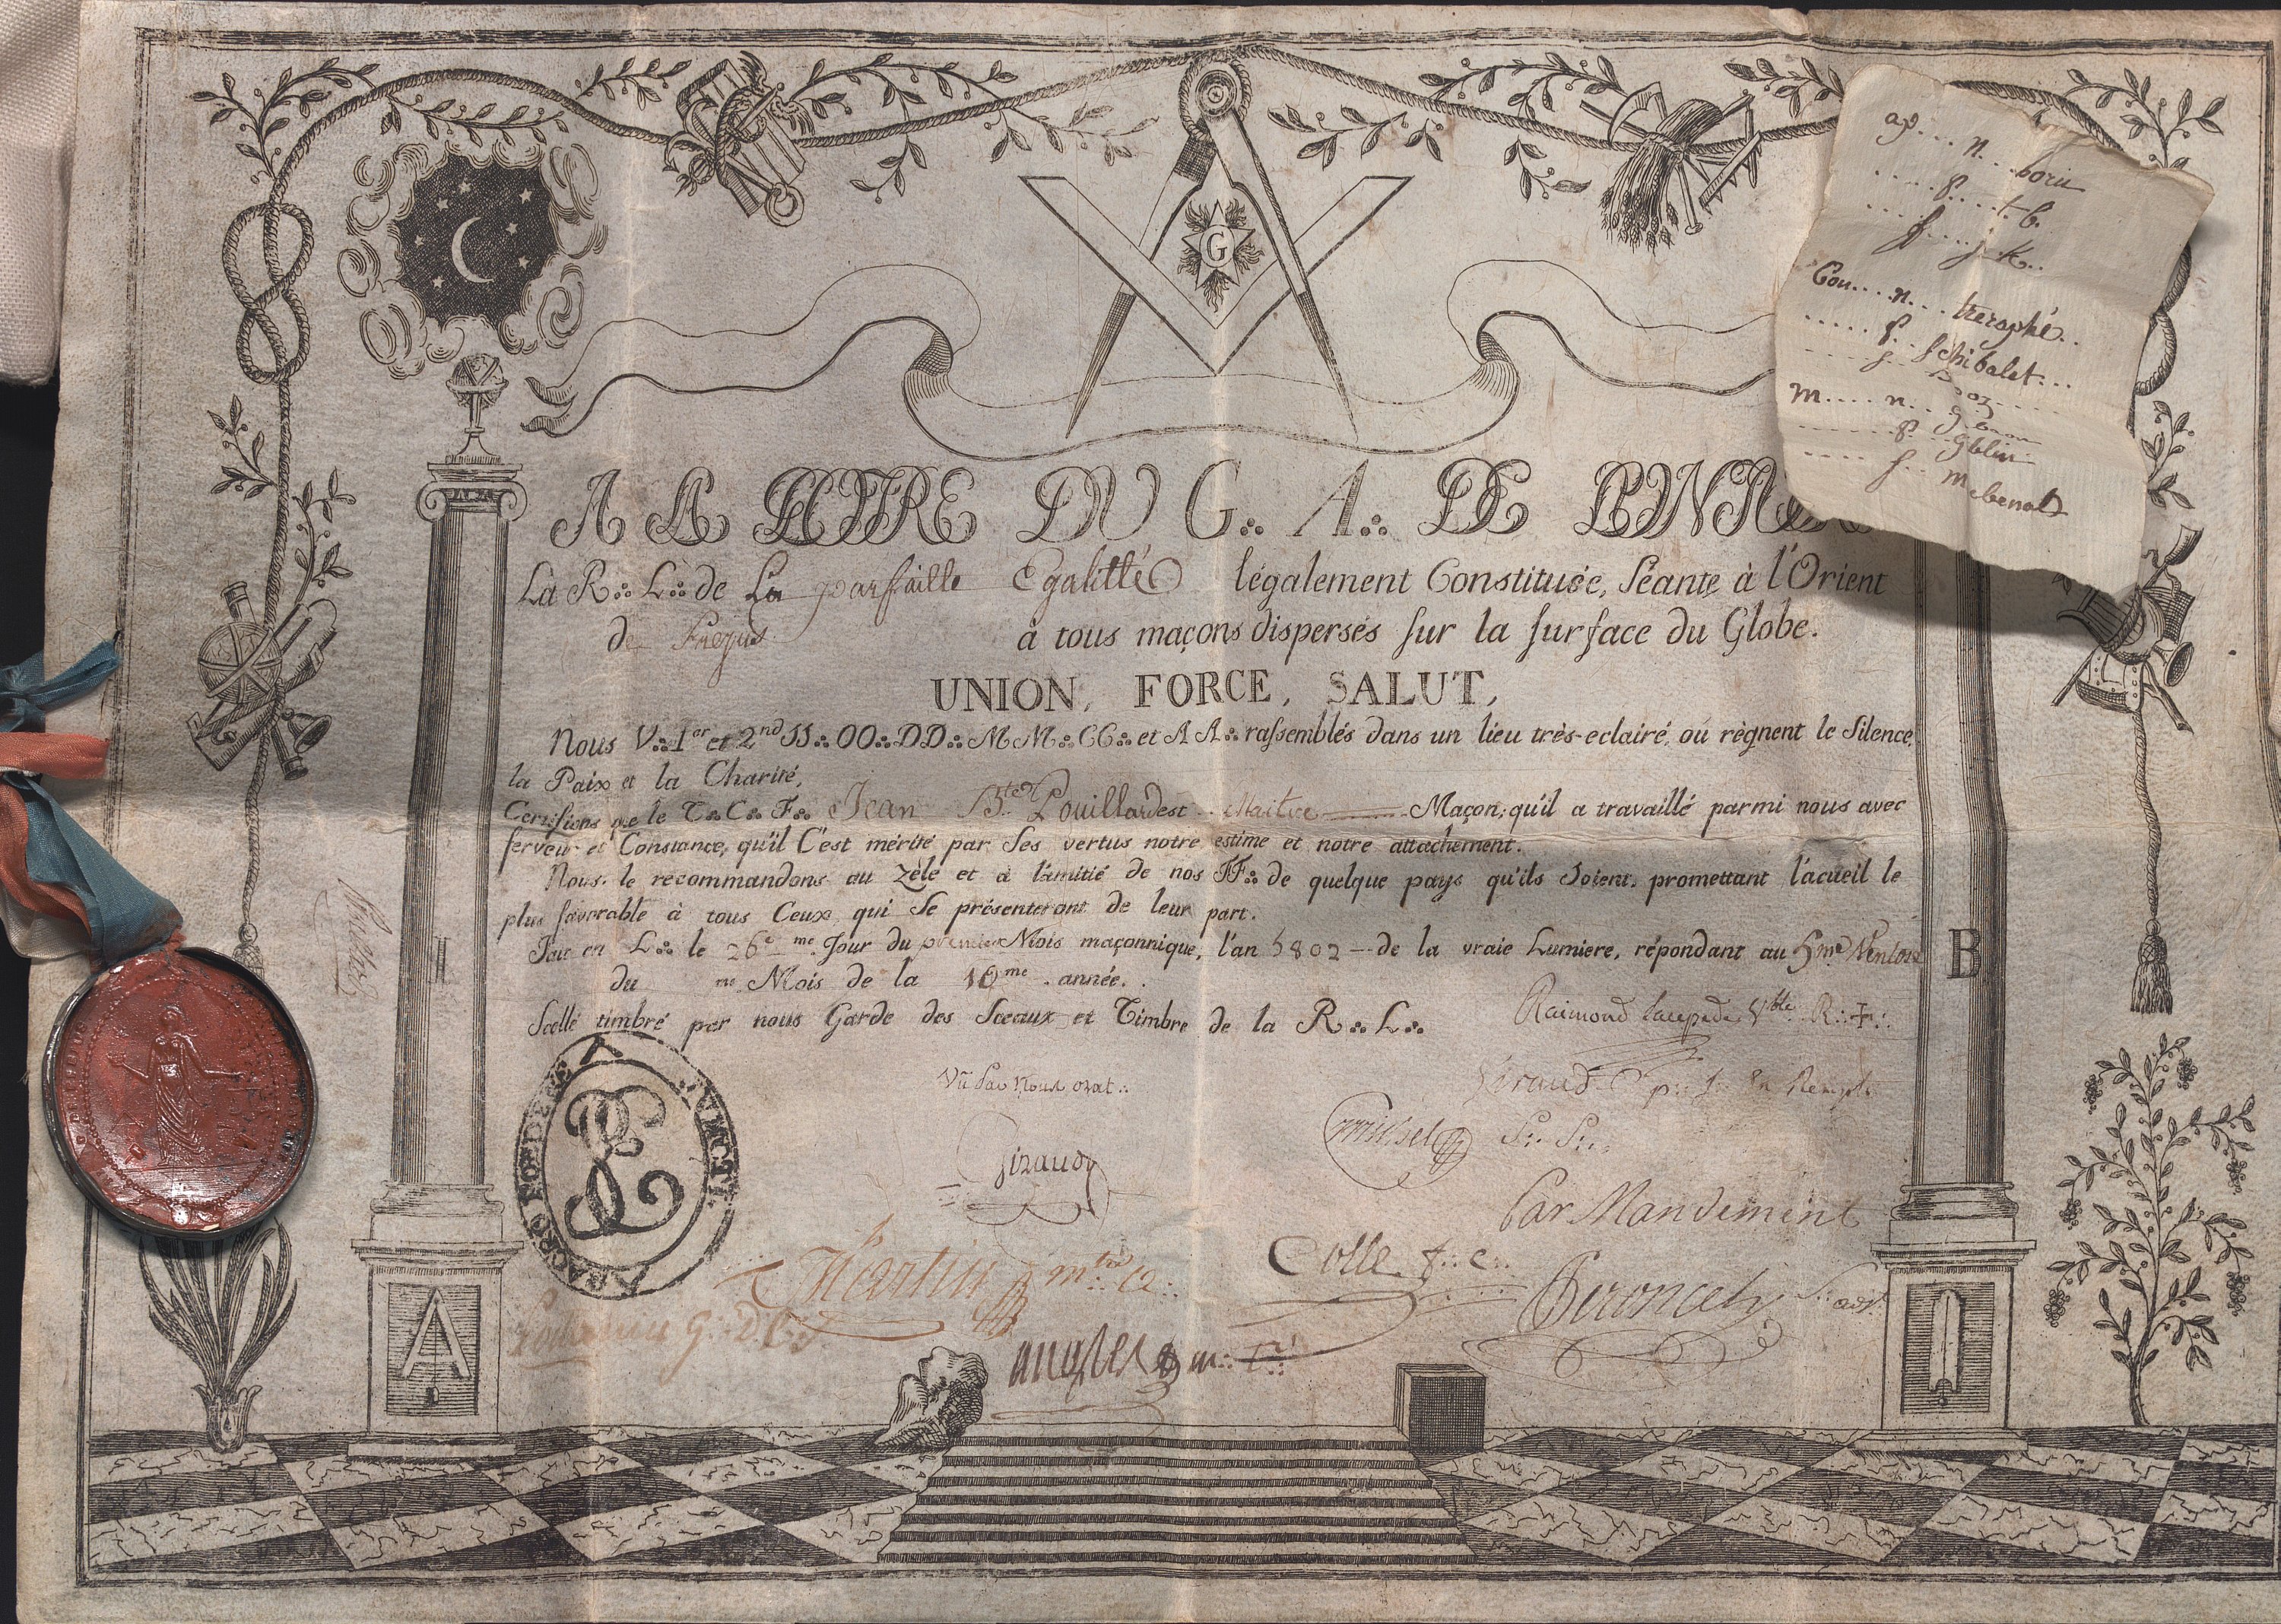 G
A LA GLOIRE DU G∴ A∴ DE L'UNIVERS
La R∴ L∴ de La parfaitte Egalitté légalement Constituée, Séante à l'Orient
de Frejus à tous maçons dispersés sur la surface du Globe.
UNION, FORCE, SALUT,
Nous V∴ 1er et 2nd SS∴ OO∴ DD∴ MM∴ CC∴ et AA∴ rassemblés dans un lieu très-eclairé, où règnent le Silence,
la Paix et la Charité,
Certifions que le T∴ C∴ F∴ Jean Bte Pouillardest Maitre Maçon; qu'il a travaillé parmi nous avec
ferveur et Constance, qu'il C'est mérité par Ses vertus notre estime et notre attachement.
Nous le recommandons au Zèle et à l'amitié de nos FF∴ de quelque pays qu'ils Soient, promettant l'acueil le
plus favorable à tous Ceux qui Se présenteront de leur part.
Fait en L∴ le 26e me Jour du premier Mois maçonnique, l'an 5802 de la vraie Lumiere, répondant au 5me Ventose
du me Mois de la 10me année.
Scellé timbré par nous Garde des Sceaux et Timbre de la R∴ L∴
Raimond Lacepede Vble R∴ ✝∴
Vu Par Nous orat∴
Giraud p∴ S∴ en Rempt
S∴ S∴
Giraudy
Par Mandement
Martin
Colle
B
A
ap.... n... boru
..... p.... t. b.
.... s.... j. k..
Con.... n... treraphé..
..... p.. schibalet...
..... s.. Boz
M.... n..
..... p. Gblin
.... s.. Mcbenat